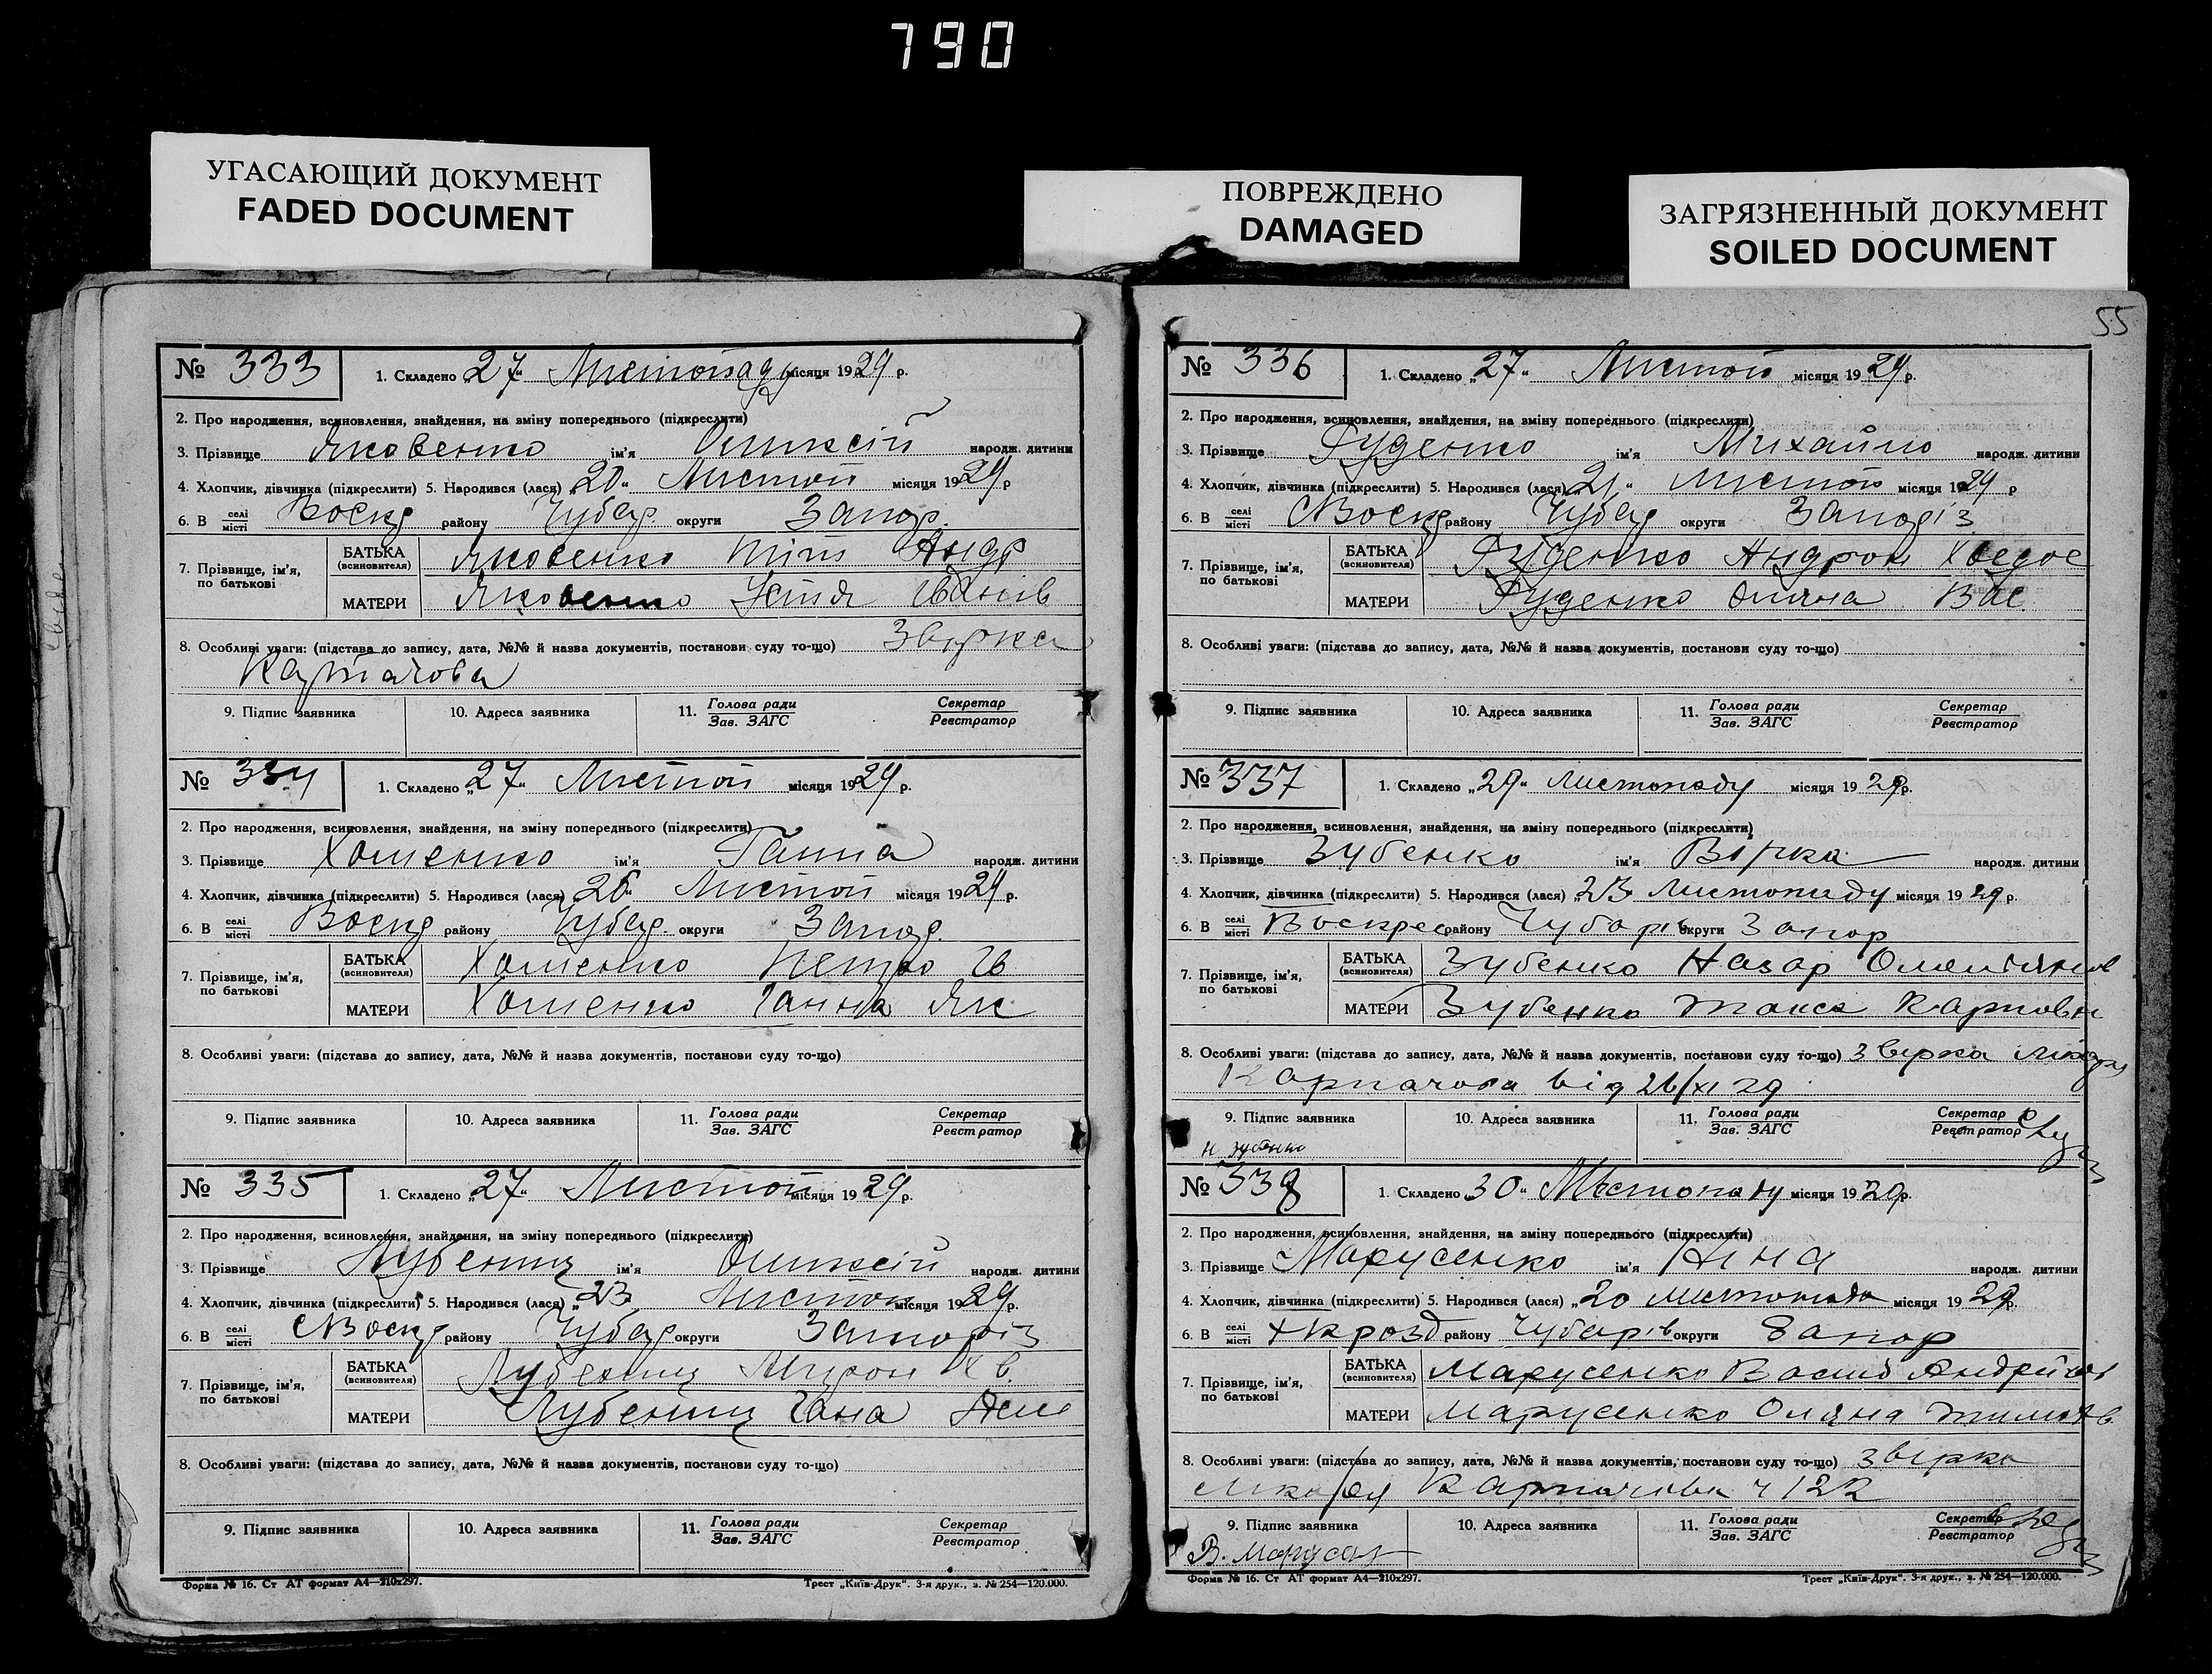 790
УГАСАЮЩИЙ ДОКУМЕНТ
FADED DOCUMENT
ПОВРЕЖДЕНО
DAMAGED
ЗАГРЯЗНЕННЫЙ ДОКУМЕНТ
SOILED DOCUMENT
№ 333 1. Складено „27“ Листопаду місяця 1929 р.
2. Про народження, всиновлення, знайдення, на зміну попереднього (підкреслити)
3. Прізвище Яковенко ім'я Олексій народж. дитини
4. Хлопчик, дівчинка (підкреслити) 5. Народився (лася) „20“ Листоп місяця 1929 р
6. В селі/місті Воскр району Чубар. округи Запор.
7. Прізвище, ім'я, по батькові
БАТЬКА (всиновителя) Яковенко Андр
МАТЕРИ Яковенко Устя Іванів
8. Особливі уваги: (підстава до запису, дата, №№ й назва документів, постанови суду то-що) Звірка
Карпачова
9. Підпис заявника 10. Адреса заявника 11. Голова ради/Зав. ЗАГС Секретар/Реєстратор
№ 334 1. Складено „27“ Листоп місяця 1929 р.
2. Про народження, всиновлення, знайдення, на зміну попереднього (підкреслити)
3. Прізвище Хоменко ім'я Ганна народж. дитини
4. Хлопчик, дівчинка (підкреслити) 5. Народився (лася) Листоп місяця 1929 р.
6. В селі/місті Воскр району Чубар. округи Запор.
7. Прізвище, ім'я, по батькові
БАТЬКА (всиновителя) Хоменко Петро Ів
МАТЕРИ Хоменко Ганна Як
8. Особливі уваги: (підстава до запису, дата, №№ й назва документів, постанови суду то-що)
9. Підпис заявника 10. Адреса заявника 11. Голова ради/Зав. ЗАГС Секретар/Реєстратор
№ 335 1. Складено „27“ Листоп місяця 1929 р.
2. Про народження, всиновлення, знайдення, на зміну попереднього (підкреслити)
3. Прізвище Лубенец ім'я Олексій народж. дитини
4. Хлопчик, дівчинка (підкреслити) 5. Народився (лася) „23 Листоп місяця 1929 р.
6. В селі/місті СВоскр району Чубар округи Запоріз
7. Прізвище, ім'я, по батькові
БАТЬКА (всиновителя) Лубенец Мирон Хв.
МАТЕРИ Лубенец Гана
8. Особливі уваги: (підстава до запису, дата, №№ й назва документів, постанови суду то-що)
9. Підпис заявника 10. Адреса заявника 11. Голова ради/Зав. ЗАГС Секретар/Реєстратор
Форма № 16. Ст АТ формат А4—210х297. Трест „Київ-Друк“. 3-я друк., з. № 254—120.000.
55
№ 336 1. Складено „27“ Листоп місяця 1929 р.
2. Про народження, всиновлення, знайдення, на зміну попереднього (підкреслити)
3. Прізвище Руденко ім'я Михайло народж. дитини
4. Хлопчик, дівчинка (підкреслити) 5. Народився (лася) „21“ Листоп місяця 1929 р
6. В селі/місті СВоскр району Чубар округи Запоріз
7. Прізвище, ім'я, по батькові
БАТЬКА (всиновителя) Руденко Андрон Хведос
МАТЕРИ Руденко Оляна Вас
8. Особливі уваги: (підстава до запису, дата, №№ й назва документів, постанови суду то-що)
9. Підпис заявника 10. Адреса заявника 11. Голова ради/Зав. ЗАГС Секретар/Реєстратор
№ 337 1. Складено „29“ листопаду місяця 1929 р.
2. Про народження, всиновлення, знайдення, на зміну попереднього (підкреслити)
3. Прізвище Зубенко ім'я Вірка народж. дитини
4. Хлопчик, дівчинка (підкреслити) 5. Народився (лася) „23 листопаду місяця 1929 р.
6. В селі/місті Воскрес району Чубарів округи Запор
7. Прізвище, ім'я, по батькові
БАТЬКА (всиновителя) Зубенко Назар Омелянов
МАТЕРИ Зубенко Карповн
8. Особливі уваги: (підстава до запису, дата, №№ й назва документів, постанови суду то-що) звірка лікаря
Карпачова від 26/XI 29
9. Підпис заявника 10. Адреса заявника 11. Голова ради/Зав. ЗАГС Секретар/Реєстратор
Н Зубенко
№ 338 1. Складено „30“ Листопаду місяця 1929 р.
2. Про народження, всиновлення, знайдення, на зміну попереднього (підкреслити)
3. Прізвище Марусенко ім'я Ніна народж. дитини
4. Хлопчик, дівчинка (підкреслити) 5. Народився (лася) „20 листопада місяця 1929 р.
6. В селі/місті району Чубарів округи Запор
7. Прізвище, ім'я, по батькові
БАТЬКА (всиновителя) Марусенко Василь Андрійов
МАТЕРИ Марусенко Оляна Тимофв
8. Особливі уваги: (підстава до запису, дата, №№ й назва документів, постанови суду то-що) звірка
лікаря Карпачова ч 122
9. Підпис заявника 10. Адреса заявника 11. Голова ради/Зав. ЗАГС Секретар/Реєстратор
В. Марусен
Форма № 16. Ст АТ формат А4—210х297. Трест „Київ-Друк“. 3-я друк., з. № 254—120.000.